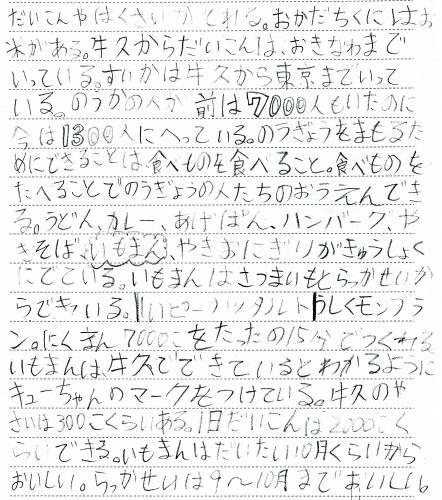 だいこんやはくさいがとれる。おかだちくにはお
米がある。牛久からだいこんは、おきなわまで
いっている。すいかは牛久から東京までいって
いる。のうかの人が前は7000人もいたのに
今は1300人にへっている。のうぎょうをまもるた
めにできることは、食べものを食べること。食べものを
たべることでのうぎょうの人たちのおうえんでき
る。うどん、カレー、あげぱん、ハンバーグ、や
きそば、いもまん、やきおにぎりがきゅうしょく
にでている。いもまんはさつまいもとらっかせいか
らできている。
ピーナッツタルト うしくモンブラ
ン。にくまん7000こをたったの15分でつくれる
いもまんは、牛久でできているとわかるように
キューちゃんのマークをつけている。牛久のや
さいは300こくらいある。1日だいこんは2000こく
らいできる。いもまんはだいたい10月くらいから
おいしい。らっかせいは9〜10月までおいしい。